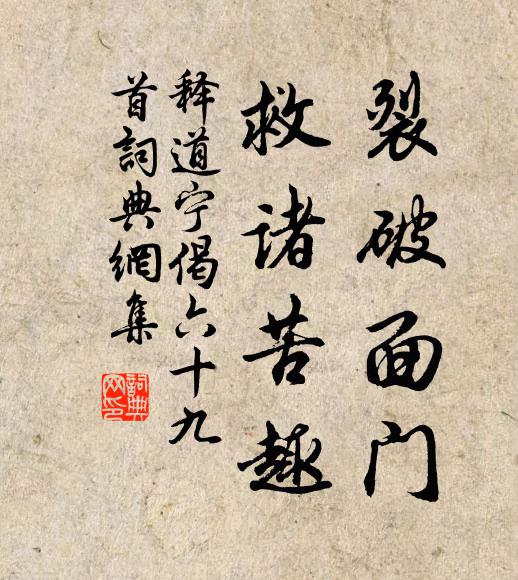 裂破面门
救诸苦趣
释道宁偈六十九
首词典網集
詞典
网印